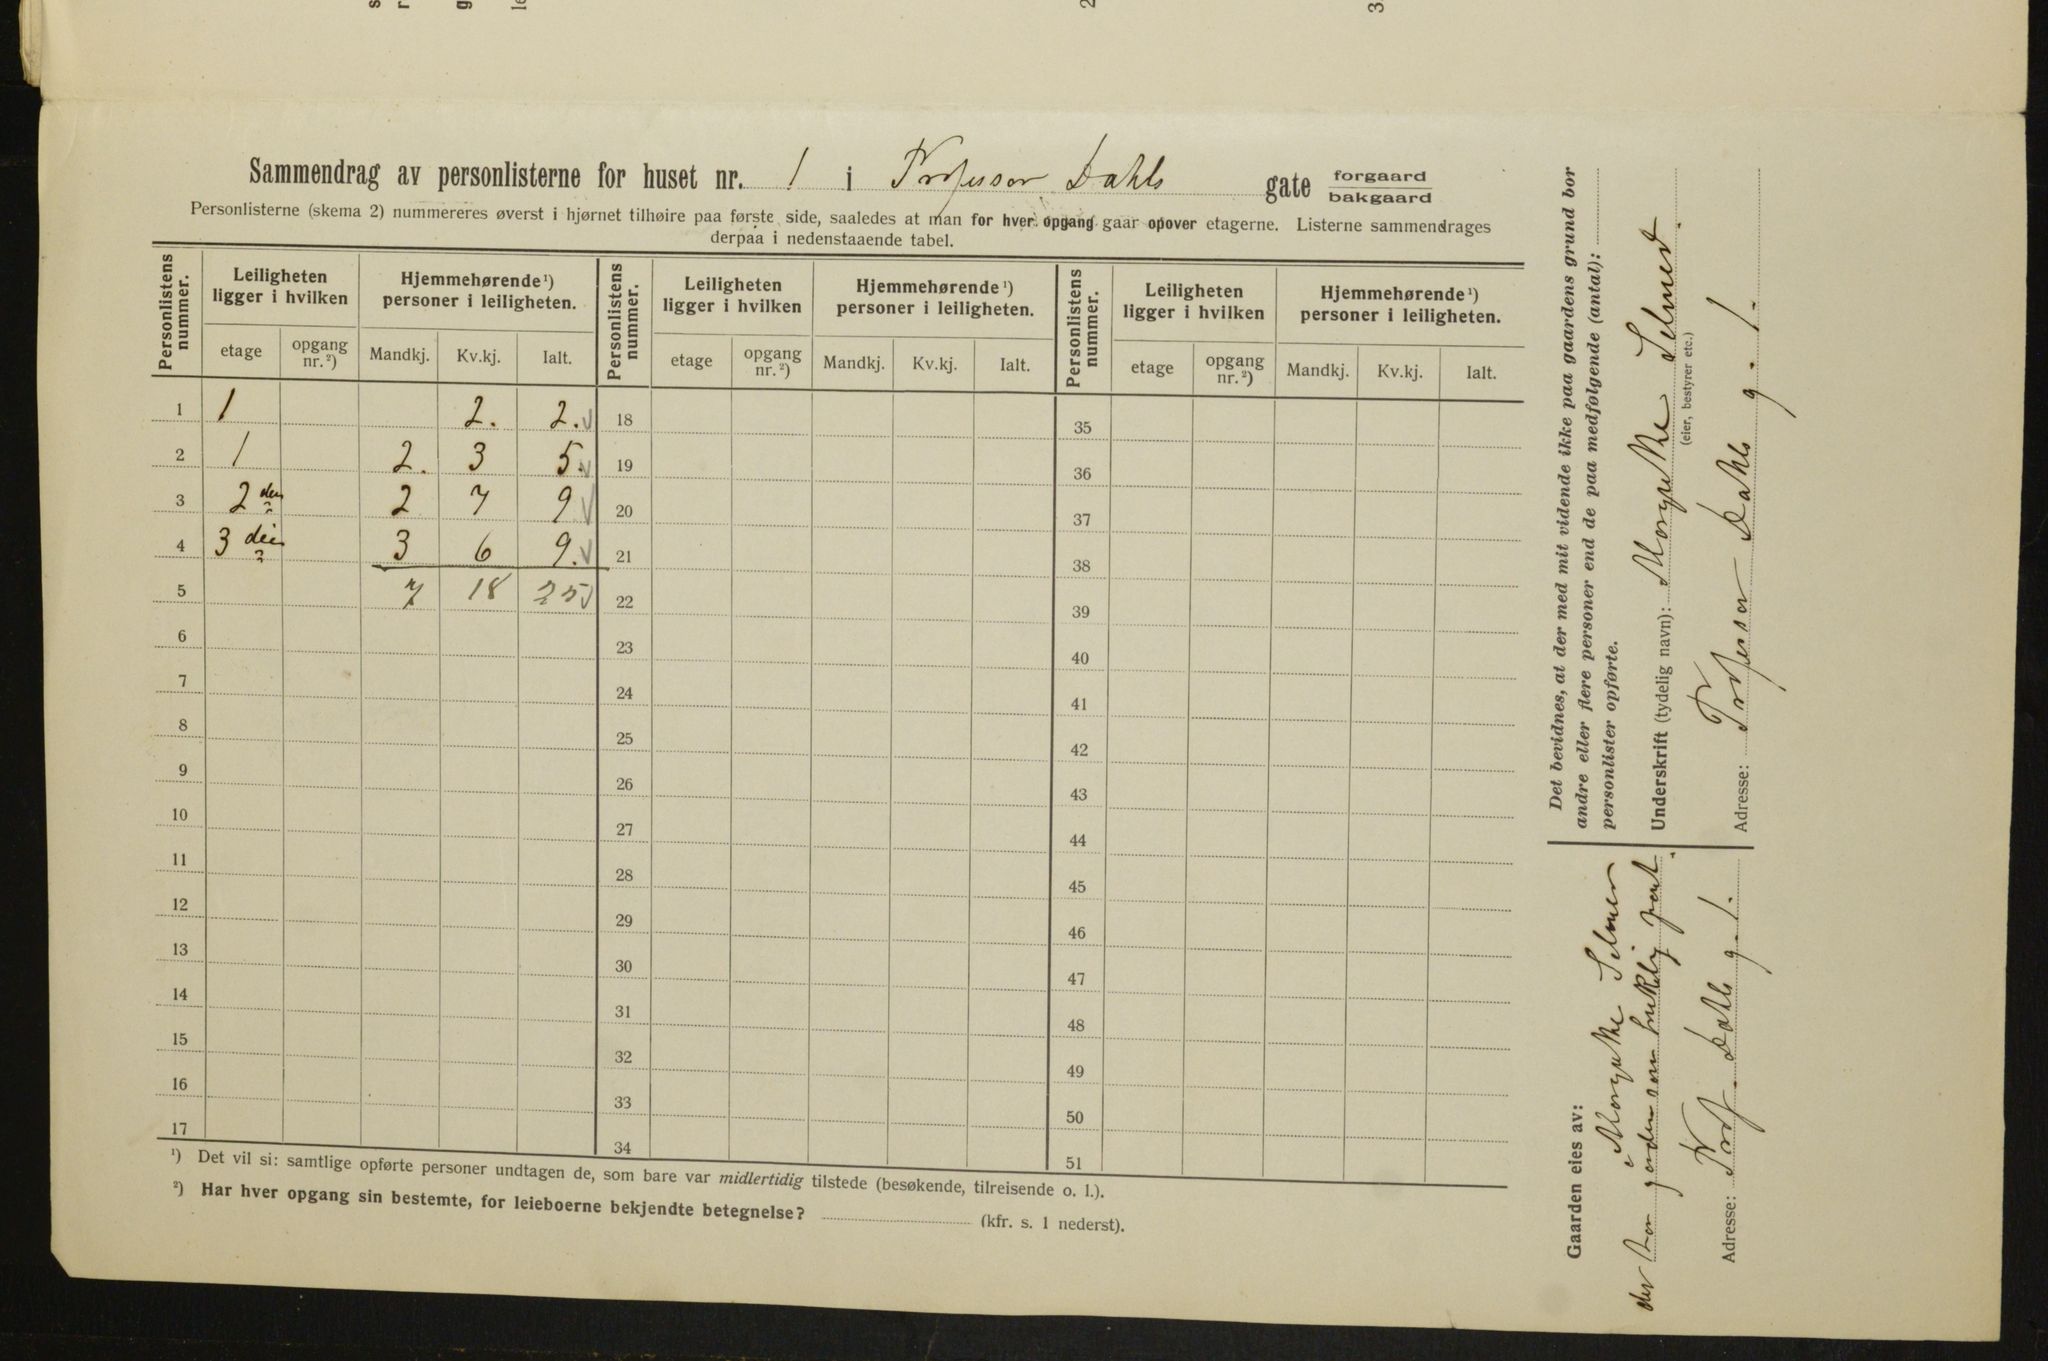 Sammendrag av personlisterne for huset nr. 1 i Professor Dahls gate forgaard
bakgaard
Personlisterne (skema 2) nummereres øverst i hjørnet tilhøire paa første side, saaledes at man for hver opgang gaar opover etagerne. Listerne sammendrages
derpaa i nedenstaaende tabel.
Personlistens nummer. Leiligheten ligger i hvilken Hjemmehørende¹) personer i leiligheten. Personlistens nummer. Leiligheten ligger i hvilken Hjemmehørende¹) personer i leiligheten. Personlistens nummer. Leiligheten ligger i hvilken Hjemmehørende¹) personer i leiligheten.
etage opgang nr.²) Mandkj. Kv.kj. Ialt. etage opgang nr.²) Mandkj. Kv.kj. Ialt. etage opgang nr.²) Mandkj. Kv.kj. Ialt.
1 1 2. 2. 18 35
2 1 2. 3 5. 19 36
3 2 den 2 7 9 20 37
4 3 die 3 6 9. 21 38
5 7 18 25 22 39
6 23 40
7 24 41
8 25 42
9 26 43
10 27 44
11 28 45
12 29 46
13 30 47
14 31 48
15 32 49
16 33 50
17 34 51
¹) Det vil si: samtlige opførte personer undtagen de, som bare var midlertidig tilstede (besøkende, tilreisende o. l.).
²) Har hver opgang sin bestemte, for leieboerne bekjendte betegnelse? (kfr. s. 1 nederst).
Det bevidnes, at der med mit vidende ikke paa gaardens grund bor
andre eller flere personer end de paa medfølgende (antal):
personlister opførte.
Underskrift (tydelig navn): Margrethe Selmer.
(eier, bestyrer etc.)
Adresse: Professor Dahls g. 1.
Gaarden eies av:
Margrethe Selmer
der har gården som brukelig pant.
Adresse: Prof. Dahls g. 1.